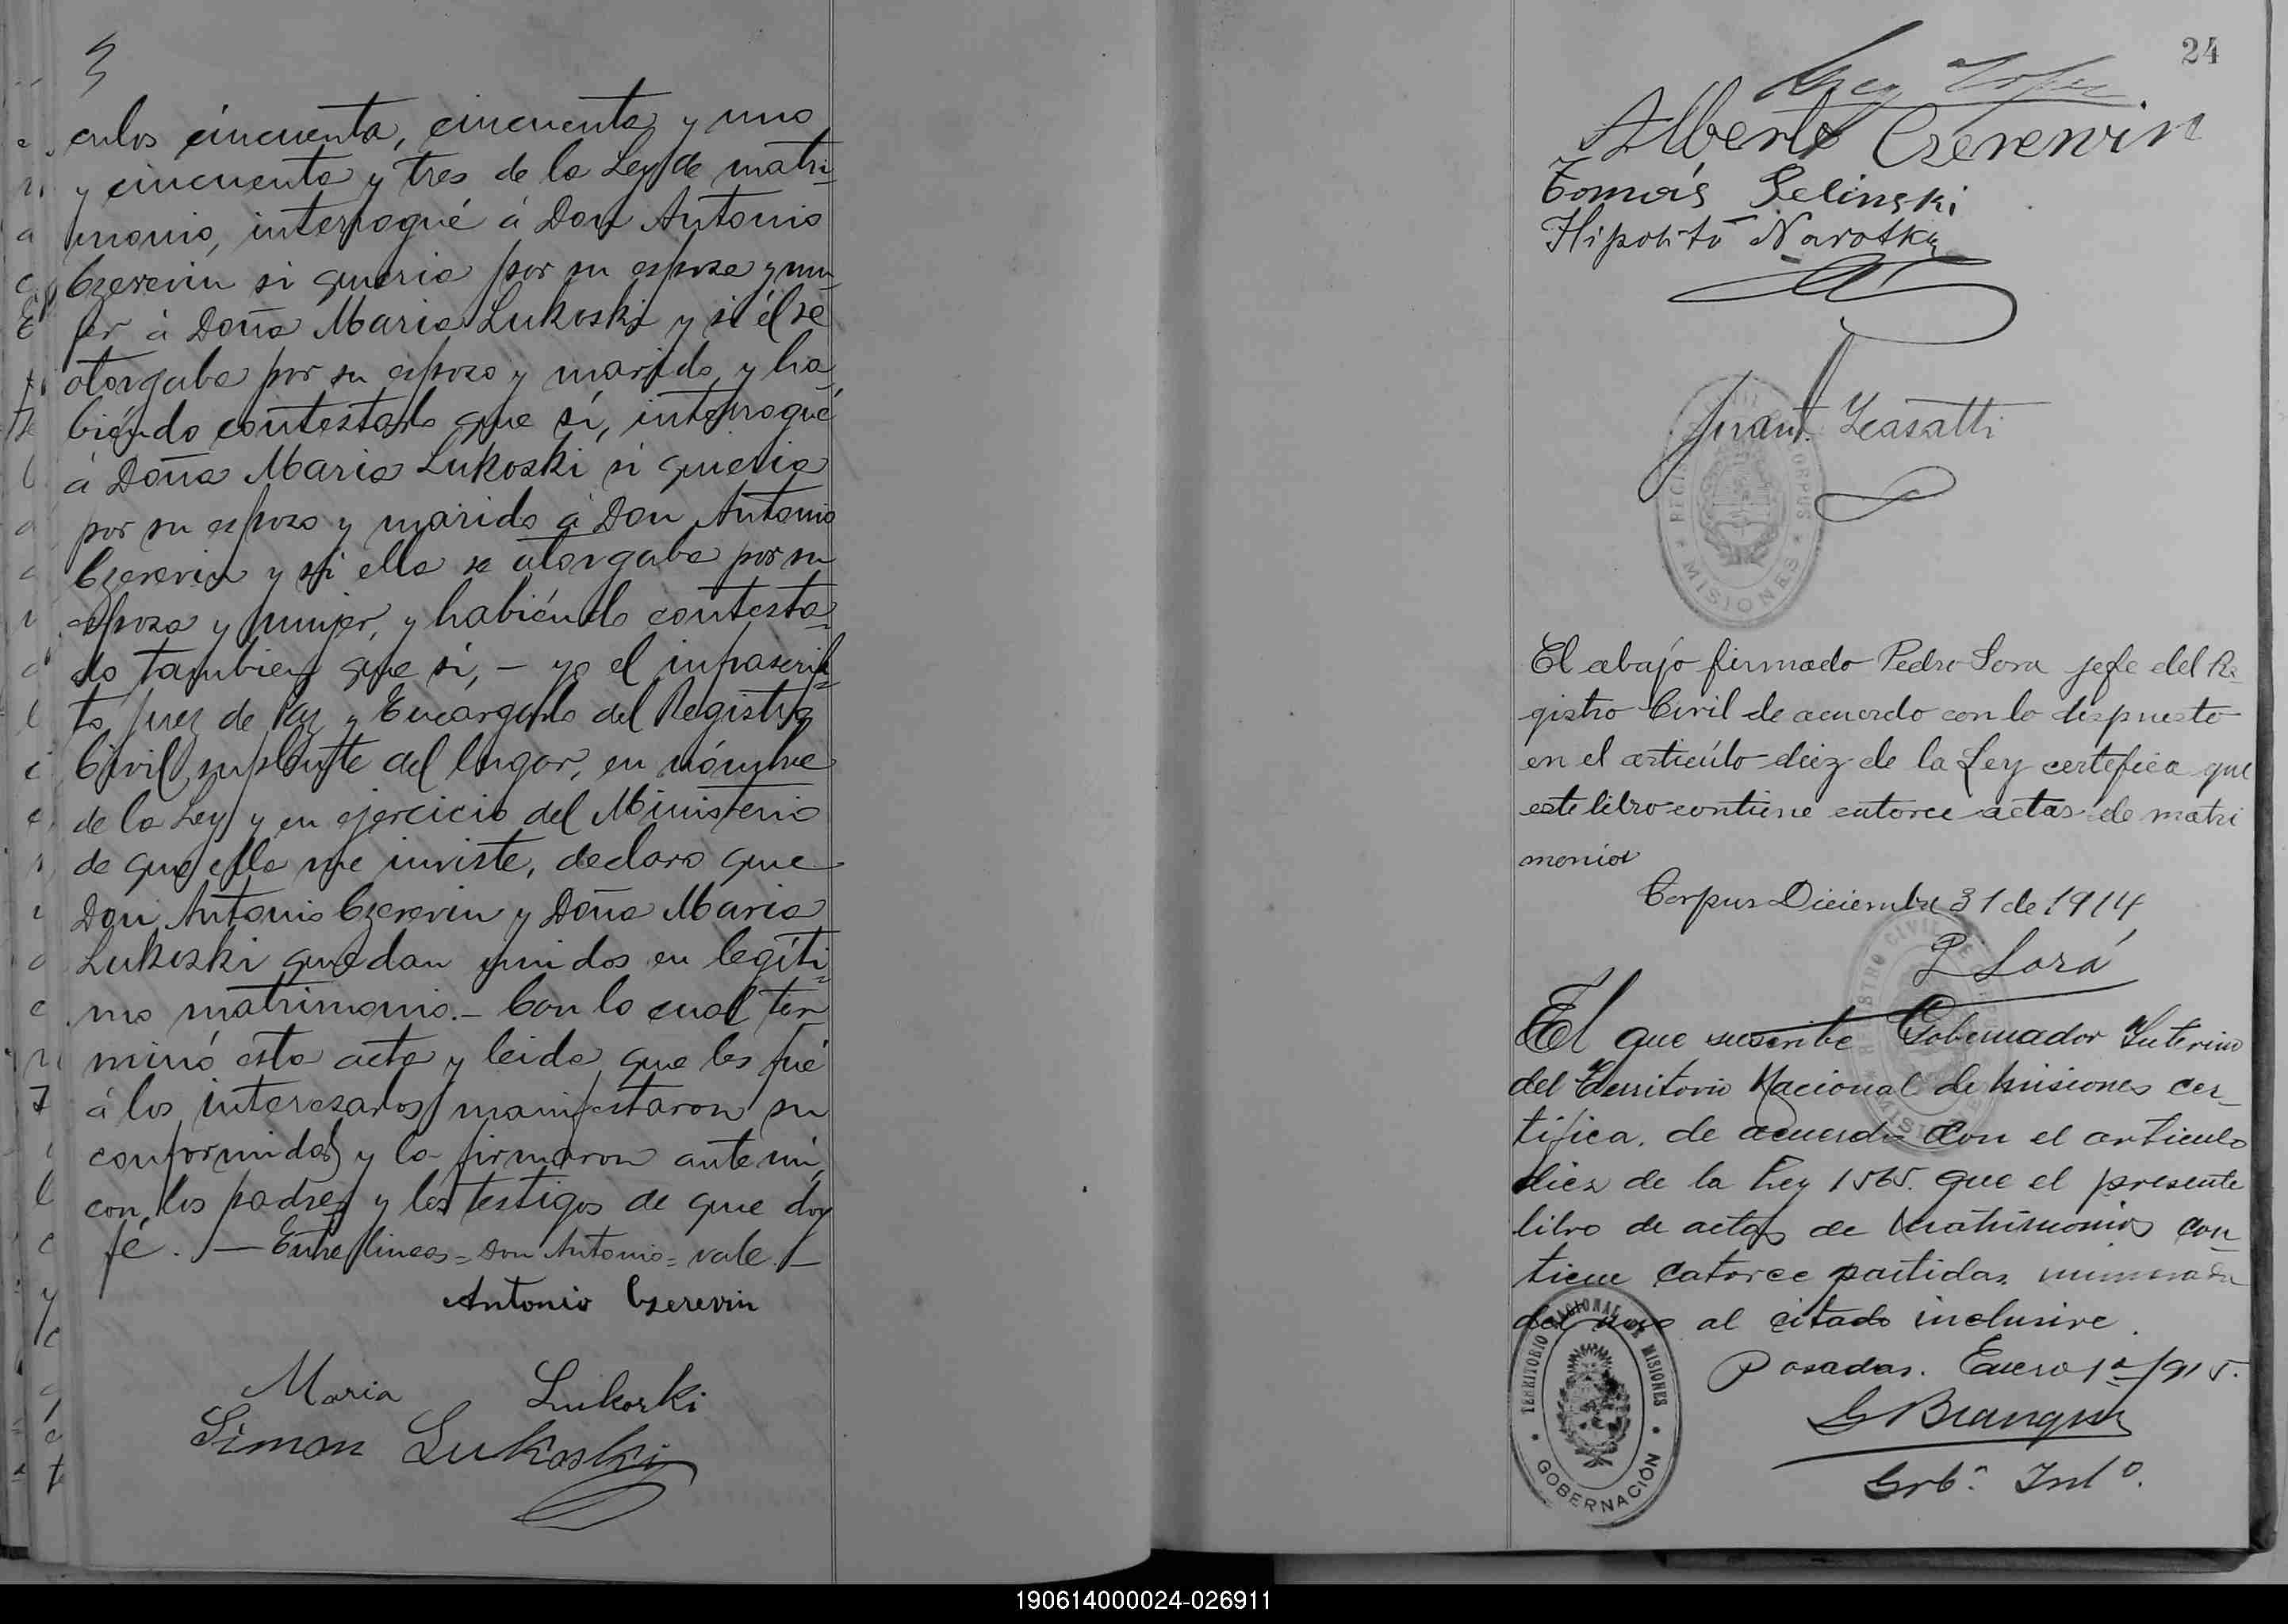 culos cincuenta, cincuenta y uno
y cincuenta y tres de la Ley de matri-
monio, interrogué á Don Antonio
Czerevin si queria por su esposa y mu-
jer á Doña Maria Lukoski y si él se
otorgaba por su esposo y marido, y ha-
biéndo contestado que sí, interrogué
á Doña Maria Lukoski si queria
por su esposo y marido á Don Antonio
Czerevin y si ella se otorgaba por su
esposa y mujer, y habiéndo contesta-
do tambien que si, — yo el infrascrip-
to juez de Paz y Encargado del Registro
Civil suplente del lugar, en nómbre
de la Ley y en ejercicio del Ministerio
de que ella me inviste, declaro que
Don Antonio Czerevin y Doña Maria
Lukoski quedan unidos en legíti-
mo matrimonio.— Con lo cual ter-
minó esta acta y leida que les fué
á los interesados manifestaron su
conformidad y la firmaron ante mí,
con los padres y los testigos de que doy
fé. — Entre lineas = Don Antonio = vale. —
Antonio Czerevin
Maria Lukoski
Simon Lukoski
24
Alberto Czerewin
Tomás Selinski
Hipolito Narotky
Juan Casatti
REGISTRO CIVIL CORPUS
MISIONES
El abajo firmado Pedro Sora jefe del Re-
gistro Civil de acuerdo con lo dispuesto
en el articúlo diez de la Ley certefica que
este libro contiene catorce actas de matri
monios
Corpus Diciembre 31 de 1914
P Sorá
REGISTRO CIVIL DE CORPUS
MISIONES
El que suscribe Gobernador Interino
del Territorio Nacional de Misiones cer-
tifica, de acuerdo con el articulo
diez de la Ley 1565. que el presente
libro de actas de Matrimonios con-
tiene catorce partidas numerada
del uno al citado inclusive.
Posadas. Enero 1º 1915.
Gob.r Int.o
TERRITORIO NACIONAL DE MISIONES
GOBERNACIÓN
190614000024-026911